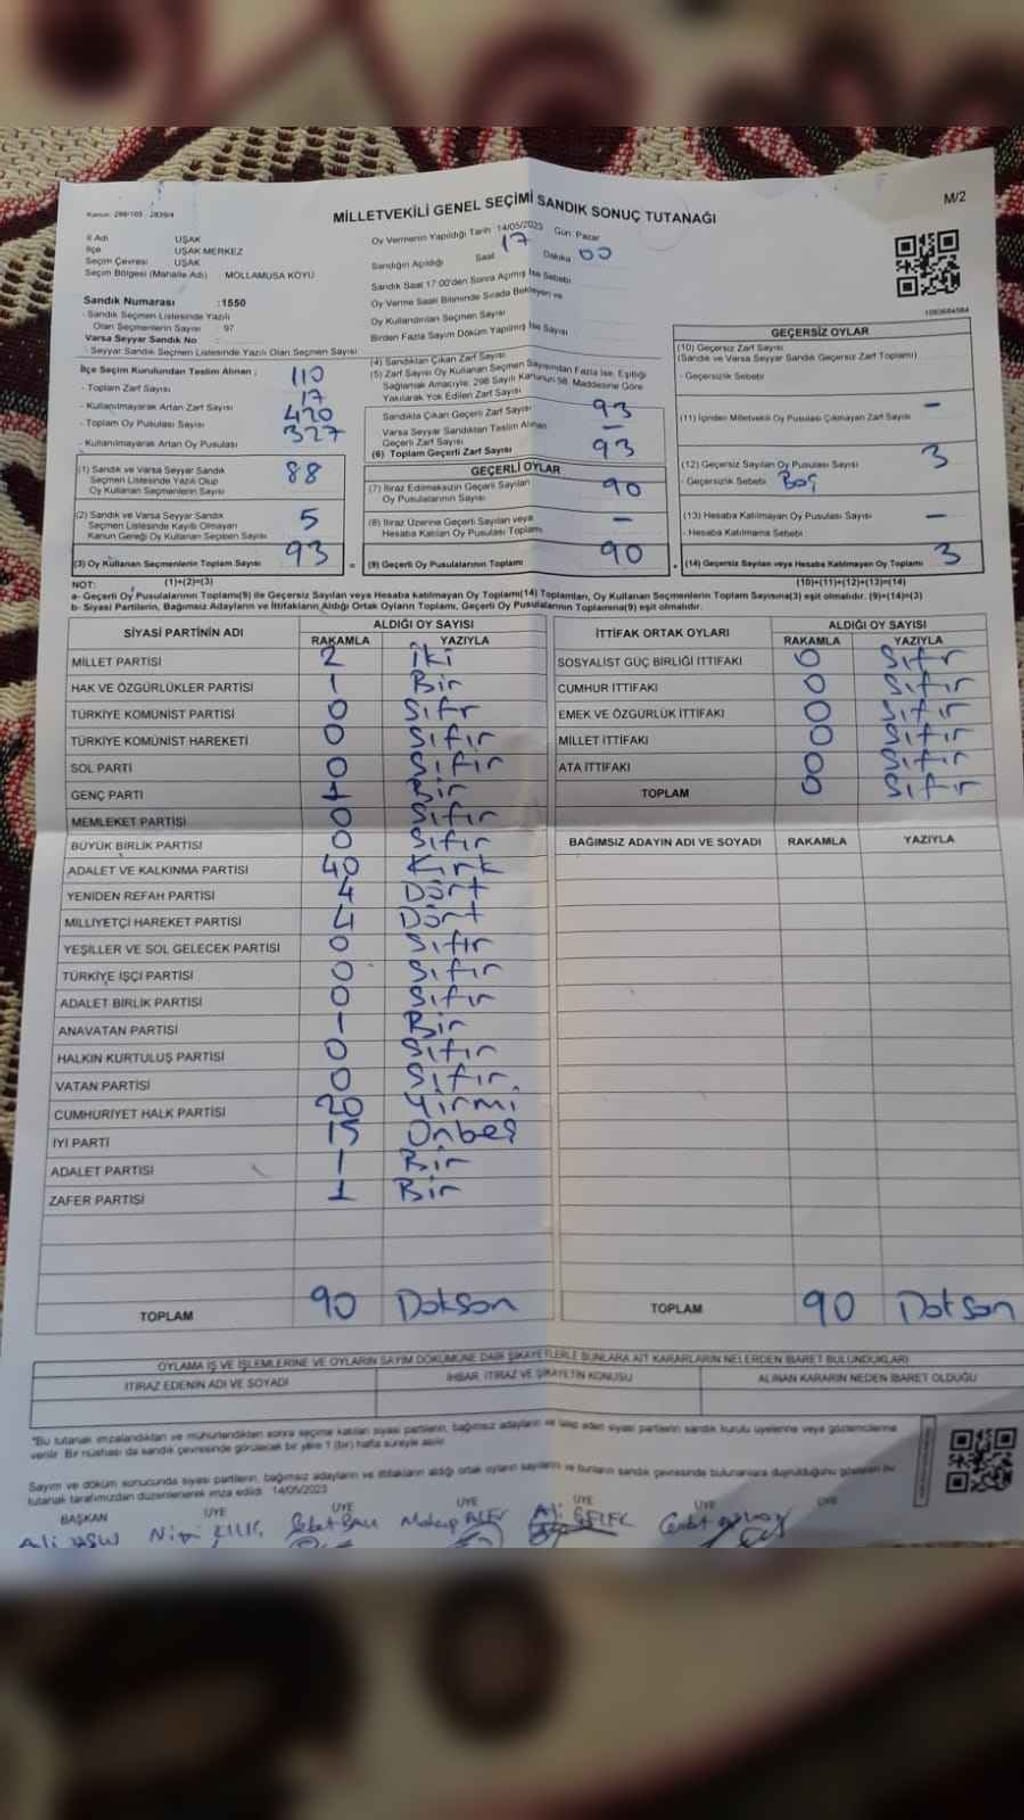 Kanun: 298/105 - 2839/4
MİLLETVEKİLİ GENEL SEÇİMİ SANDIK SONUÇ TUTANAĞI
M/2
İl Adı UŞAK
İlçe UŞAK MERKEZ
Seçim Çevresi UŞAK
Seçim Bölgesi (Mahalle Adı) MOLLAMUSA KÖYÜ
Sandık Numarası :1550
Sandık Seçmen Listesinde Yazılı
Olan Seçmenlerin Sayısı 97
Varsa Seyyar Sandık No
Seyyar Sandık Seçmen Listesinde Yazılı Olan Seçmen Sayısı
Oy Vermenin Yapıldığı Tarih 14/05/2023 Gün: Pazar
Sandığın Açıldığı Saat 17 Dakika 00
Sandık Saat 17:00'den Sonra Açılmış İse Sebebi
Oy Verme Saati Bitiminde Sırada Bekleyen ve
Oy Kullandırılan Seçmen Sayısı
Birden Fazla Sayım Döküm Yapılmış İse Sayısı
İlçe Seçim Kurulundan Teslim Alınan :
- Toplam Zarf Sayısı 110
- Kullanılmayarak Artan Zarf Sayısı 17
- Toplam Oy Pusulası Sayısı 420
- Kullanılmayarak Artan Oy Pusulası 327
(1) Sandık ve Varsa Seyyar Sandık
Seçmen Listesinde Yazılı Olup
Oy Kullanan Seçmenlerin Sayısı 88
(2) Sandık ve Varsa Seyyar Sandık
Seçmen Listesinde Kayıtlı Olmayan
Kanun Gereği Oy Kullanan Seçmen Sayısı 5
(3) Oy Kullanan Seçmenlerin Toplam Sayısı 93
(4) Sandıktan Çıkan Zarf Sayısı
(5) Zarf Sayısı Oy Kullanan Seçmen Sayısından Fazla İse, Eşitliği
Sağlamak Amacıyla, 298 Sayılı Kanunun 98. Maddesine Göre
Yakılarak Yok Edilen Zarf Sayısı
Sandıkta Çıkan Geçerli Zarf Sayısı 93
Varsa Seyyar Sandıktan Teslim Alınan
Geçerli Zarf Sayısı –
(6) Toplam Geçerli Zarf Sayısı 93
GEÇERLİ OYLAR
(7) İtiraz Edilmeksizin Geçerli Sayılan
Oy Pusulalarının Sayısı 90
(8) İtiraz Üzerine Geçerli Sayılan veya
Hesaba Katılan Oy Pusulası Toplamı –
(9) Geçerli Oy Pusulalarının Toplamı 90
GEÇERSİZ OYLAR
(10) Geçersiz Zarf Sayısı
(Sandık ve Varsa Seyyar Sandık Geçersiz Zarf Toplamı)
- Geçersizlik Sebebi
(11) İçinden Milletvekili Oy Pusulası Çıkmayan Zarf Sayısı –
(12) Geçersiz Sayılan Oy Pusulası Sayısı 3
- Geçersizlik Sebebi Boş
(13) Hesaba Katılmayan Oy Pusulası Sayısı –
- Hesaba Katılmama Sebebi
(14) Geçersiz Sayılan veya Hesaba Katılmayan Oy Toplamı 3
NOT: (1)+(2)=(3) (10)+(11)+(12)+(13)=(14)
a- Geçerli Oy Pusulalarının Toplamı(9) ile Geçersiz Sayılan veya Hesaba katılmayan Oy Toplamı(14) Toplamları, Oy Kullanan Seçmenlerin Toplam Sayısına(3) eşit olmalıdır. (9)+(14)=(3)
b- Siyasi Partilerin, Bağımsız Adayların ve İttifakların Aldığı Ortak Oyların Toplamı, Geçerli Oy Pusulalarının Toplamına(9) eşit olmalıdır.
SİYASİ PARTİNİN ADI ALDIĞI OY SAYISI
RAKAMLA YAZIYLA
MİLLET PARTİSİ 2 iki
HAK VE ÖZGÜRLÜKLER PARTİSİ 1 Bir
TÜRKİYE KOMÜNİST PARTİSİ 0 Sıfır
TÜRKİYE KOMÜNİST HAREKETİ 0 Sıfır
SOL PARTİ 0 Sıfır
GENÇ PARTİ 1 Bir
MEMLEKET PARTİSİ 0 Sıfır
BÜYÜK BİRLİK PARTİSİ 0 Sıfır
ADALET VE KALKINMA PARTİSİ 40 Kırk
YENİDEN REFAH PARTİSİ 4 Dört
MİLLİYETÇİ HAREKET PARTİSİ 4 Dört
YEŞİLLER VE SOL GELECEK PARTİSİ 0 Sıfır
TÜRKİYE İŞÇİ PARTİSİ 0 Sıfır
ADALET BİRLİK PARTİSİ 0 Sıfır
ANAVATAN PARTİSİ 1 Bir
HALKIN KURTULUŞ PARTİSİ 0 Sıfır
VATAN PARTİSİ 0 Sıfır
CUMHURİYET HALK PARTİSİ 20 Yirmi
İYİ PARTİ 15 Onbeş
ADALET PARTİSİ 1 Bir
ZAFER PARTİSİ 1 Bir
TOPLAM 90 Doksan
İTTİFAK ORTAK OYLARI ALDIĞI OY SAYISI
RAKAMLA YAZIYLA
SOSYALİST GÜÇ BİRLİĞİ İTTİFAKI 0 Sıfır
CUMHUR İTTİFAKI 0 Sıfır
EMEK VE ÖZGÜRLÜK İTTİFAKI 0 Sıfır
MİLLET İTTİFAKI 0 Sıfır
ATA İTTİFAKI 0 Sıfır
TOPLAM 0 Sıfır
BAĞIMSIZ ADAYIN ADI VE SOYADI RAKAMLA YAZIYLA
TOPLAM 90 Doksan
OYLAMA İŞ VE İŞLEMLERİNE VE OYLARIN SAYIM DÖKÜMÜNE DAİR ŞİKAYETLERLE BUNLARA AİT KARARLARIN NELERDEN İBARET BULUNDUKLARI
İTİRAZ EDENİN ADI VE SOYADI İHBAR, İTİRAZ VE ŞİKAYETİN KONUSU ALINAN KARARIN NEDEN İBARET OLDUĞU
"Bu tutanak imzalandıktan ve mühürlendikten sonra seçime katılan siyasi partilerin, bağımsız adayların ve talep eden siyasi partilerin sandık kurulu üyelerine veya gözlemcilerine
verilir. Bir nüshası da sandık çevresinde görülecek bir yere 1 (bir) hafta süreyle asılır.
Sayım ve döküm sonucunda siyasi partilerin, bağımsız adayların ve ittifakların aldığı ortak oyların sayılarını ve bunların sandık çevresinde bulunanlara duyurulduğunu gösteren bu
tutanak tarafımızdan düzenlenerek imza edildi. 14/05/2023
BAŞKAN ÜYE ÜYE ÜYE ÜYE ÜYE ÜYE
Ali